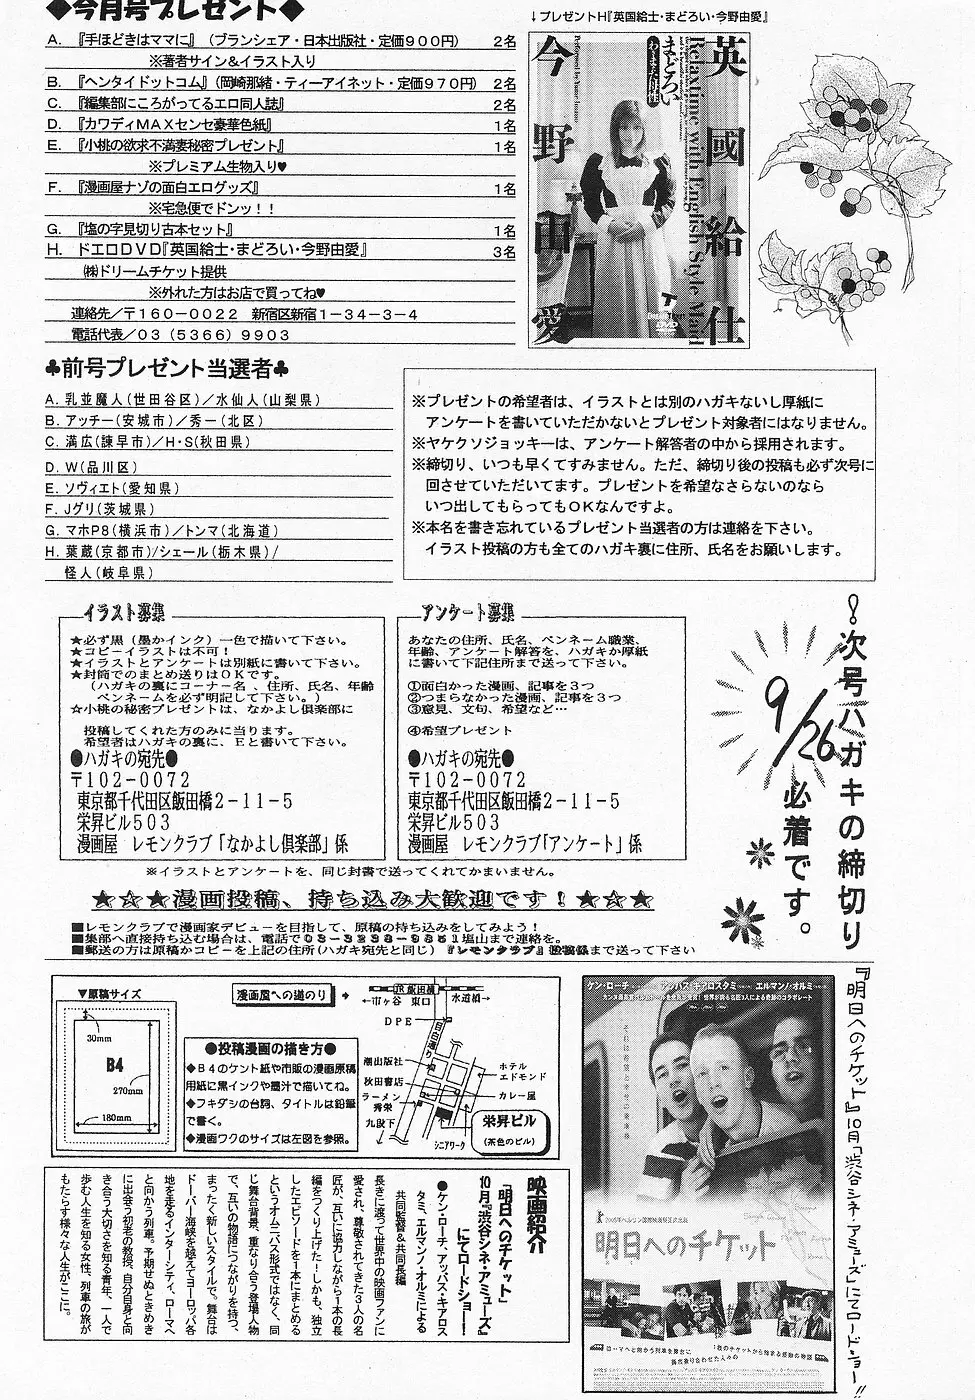 ◆今月号プレゼント◆
A. 『手ほどきはママに』(ブランシェア・日本出版社・定価900円) 2名
※著者サイン&イラスト入り
B. 『ヘンタイドットコム』(岡崎那緒・ティーアイネット・定価970円) 2名
C. 『編集部にころがってるエロ同人誌』 2名
D. 『カワディMAXセンセ豪華色紙』 1名
E. 『小桃の欲求不満妻秘密プレゼント』 1名
※プレミアム生物入り♥
F. 『漫画屋ナゾの面白エログッズ』 1名
※宅急便でドンッ!!
G. 『塩の字見切り古本セット』 1名
H. ドエロDVD『英国給士・まどろい・今野由愛』 3名
㈱ドリームチケット提供
※外れた方はお店で買ってね♥
連絡先/〒160-0022 新宿区新宿1-34-3-4
電話代表/03(5366)9903
↓プレゼントH『英国給士・まどろい・今野由愛』
英國給仕
Relaxtime with English Style Maid
まどろい
今野由愛
♣前号プレゼント当選者♣
A. 乳並魔人(世田谷区)/水仙人(山梨県)
B. アッチー(安城市)/秀一(北区)
C. 満広(諫早市)/H・S(秋田県)
D. W(品川区)
E. ソヴィエト(愛知県)
F. Jグリ(茨城県)
G. マホP8(横浜市)/トンマ(北海道)
H. 葉蔵(京都市)/シェール(栃木県)/
怪人(岐阜県)
※プレゼントの希望者は、イラストとは別のハガキないし厚紙に
アンケートを書いていただかないとプレゼント対象者にはなりません。
※ヤケクソジョッキーは、アンケート解答者の中から採用されます。
※締切り、いつも早くてすみません。ただ、締切り後の投稿も必ず次号に
回させていただいてます。プレゼントを希望なさらないのなら
いつ出してもらってもOKなんですよ。
※本名を書き忘れているプレゼント当選者の方は連絡を下さい。
イラスト投稿の方も全てのハガキ裏に住所、氏名をお願いします。
イラスト募集
★必ず黒(墨かインク)一色で描いて下さい。
★コピーイラストは不可!
★イラストとアンケートは別紙に書いて下さい。
★封筒でのまとめ送りはOKです。
(ハガキの裏にコーナー名、住所、氏名、年齢
ペンネームを必ず明記して下さい。)
☆小桃の秘密プレゼントは、なかよし倶楽部に
投稿してくれた方のみに当ります。
希望者はハガキの裏に、Eと書いて下さい。
●ハガキの宛先●
〒102-0072
東京都千代田区飯田橋2-11-5
栄昇ビル503
漫画屋 レモンクラブ「なかよし倶楽部」係
アンケート募集
あなたの住所、氏名、ペンネーム職業、
年齢、アンケート解答を、ハガキか厚紙
に書いて下記住所まで送って下さい。
①面白かった漫画、記事を3つ
②つまらなかった漫画、記事を3つ
③意見、文句、希望など…
④希望プレゼント
●ハガキの宛先●
〒102-0072
東京都千代田区飯田橋2-11-5
栄昇ビル503
漫画屋 レモンクラブ「アンケート」係
!次号ハガキの締切り
9/26
必着です。
※イラストとアンケートを、同じ封書で送ってくれてかまいません。
★☆★漫画投稿、持ち込み大歓迎です!★☆★
■レモンクラブで漫画家デビューを目指して、原稿の持ち込みをしてみよう!
■集部へ直接持ち込む場合は、電話で03-3238-9851塩山まで連絡を。
■郵送の方は原稿かコピーを上記の住所(ハガキ宛先と同じ)『レモンクラブ』投稿係まで送って下さい
▼原稿サイズ
30mm
B4
270mm
180mm
漫画屋への道のり
●投稿漫画の描き方●
◆B4のケント紙や市販の漫画原稿
用紙に黒インクや墨汁で描いてね。
◆フキダシの台詞、タイトルは鉛筆
で書く。
◆漫画ワクのサイズは左図を参照。
JR飯田橋
←市ヶ谷 東口 水道橋→
DPE
目白通り
潮出版社
秋田書店
ラーメン
秀栄
九段下
ホテル
エドモンド
カレー屋
シニアワーク
栄昇ビル
(茶色のビル)
映画紹介
『明日へのチケット』
10月『渋谷シネ・アミューズ』
にてロードショー!
●ケン・ローチ、アッバス・キアロス
タミ、エルマンノ・オルミによる
共同監督&共同長編
長きに渡って世界中の映画ファンに
愛され、尊敬されてきた3人の名
匠が、互いに協力しながら1本の長
編をつくり上げた!しかも、独立
したエピソードを1本にまとめる
というオムニバス形式ではなく、同
じ舞台背景、重なり合う登場人物
で、互いの物語につながりを持つ、
まったく新しいスタイルで。舞台は
ドーバー海峡を越えてヨーロッパ各
地を走るインターシティ、ローマへ
と向かう列車。予期せぬときめき
に出会う初老の教授、自分自身と向
き合う大切さを知る青年、一人で
歩む人生を知る女性、列車の旅が
もたらす様々な人生がここに。
ケン・ローチ アッバス・キアロスタミ エルマンノ・オルミ
明日へのチケット
『明日へのチケット』10月「渋谷シネ・アミューズ」にてロードショー!!